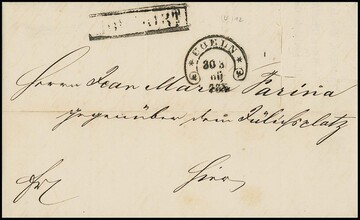 EGELN
30 3
Herrn Jean Maria Farina
gegenüber dem Jülichsplatz
fr
hier